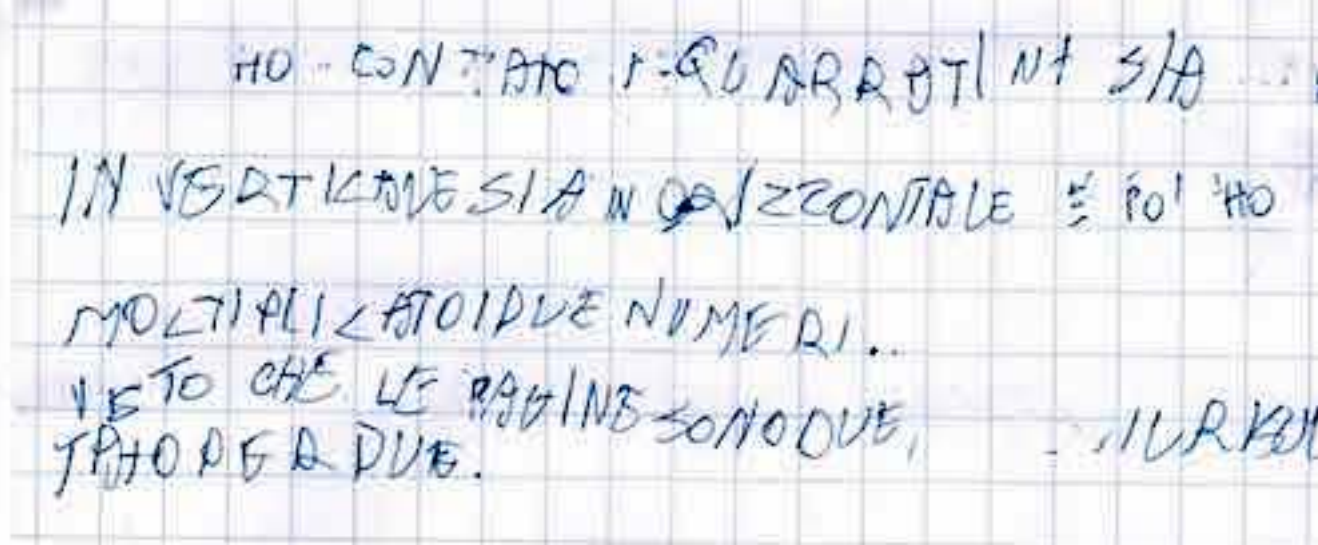 HO CONTATO I QUARRATINI SIA
IN VERTICALE SIA IN ORIZZONTALE E POI HO
MOLTIPLICATO I DUE NUMERI..
VISTO CHE LE PAGINE SONO DUE, IL RISUL
TATO PER DUE.